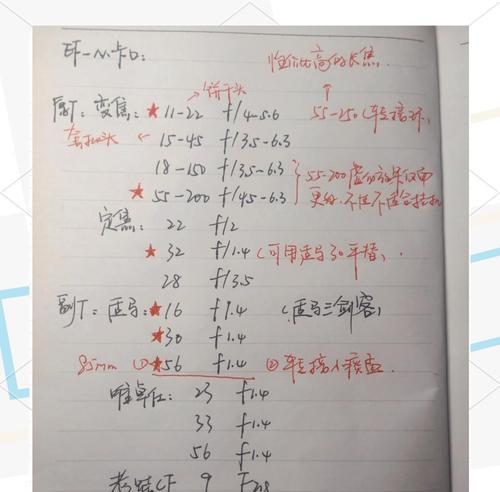 EF-M卡口: 性价比高的长焦
饼干头
原厂: 变焦: ★ 11-22 f/4-5.6 55-250 (转接环)
套机头 15-45 f/3.5-6.3
18-150 f/3.5-6.3
★ 55-200 f/4.5-6.3 55-200虚化效果仅
更好,不但不适合挂机
定焦: 22 f/2
★ 32 f/1.4 (可用适马30平替)
28 f/3.5
副厂: 适马: ★16 f1.4 (适马三剑客)
★30 f1.4
85mm ① ★56 f1.4 ② 转接
唯卓仕: 23 f1.4
33 f1.4
56 f1.4
老蛙CF 9 F2.8